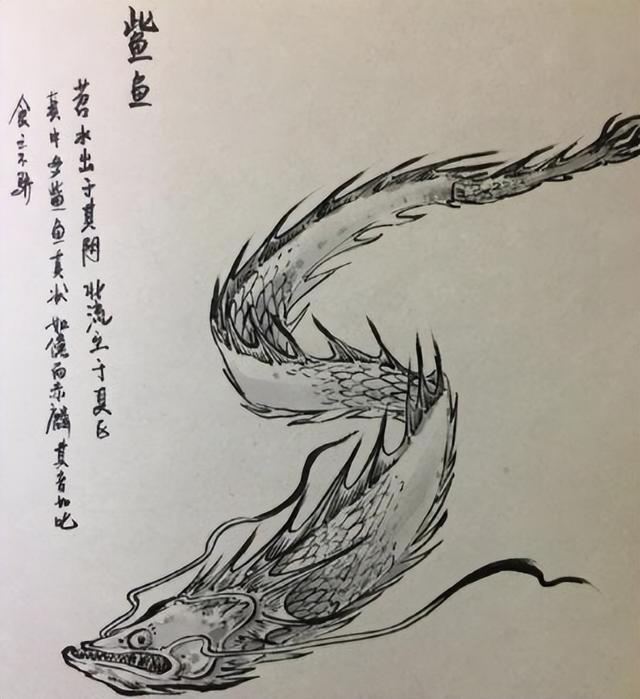 鮆鱼
苕水出于其阴北流于具区
其中多鮆鱼其状如儵而赤麟其音如叱
食之不骄